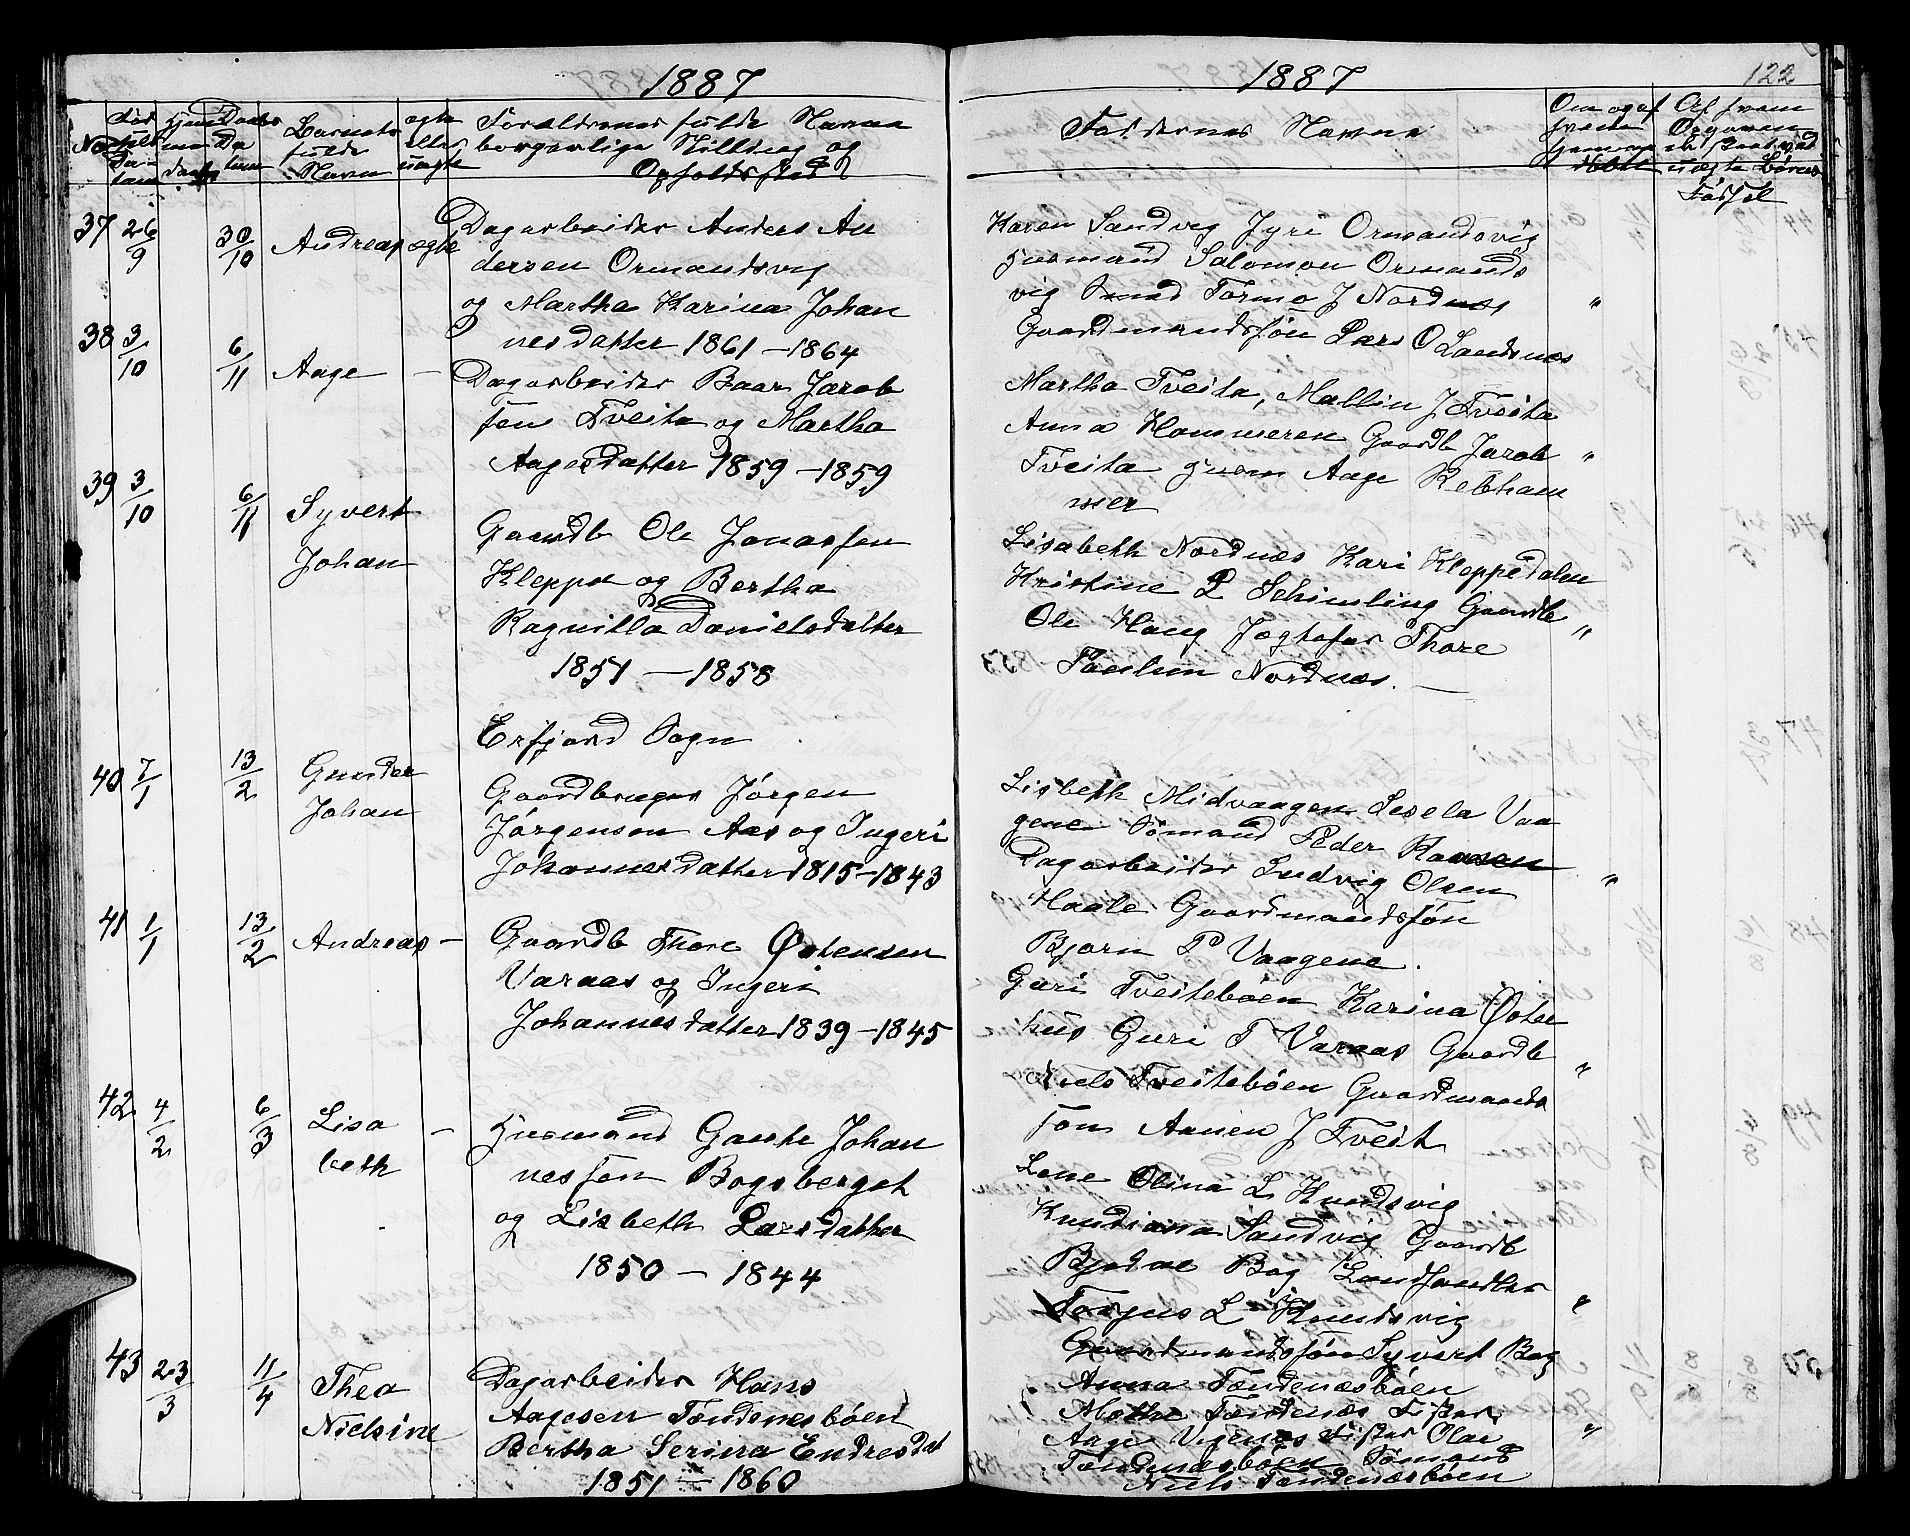 1887
No
Barnets
fulde
Navn
ægte
eller
uægte
Forældrenes fulde Navne
borgerlige Stilling og
Opholdssted
37 26/9 30/10 Andreas ægte
Dagarbeider Anders An
dersen Ormandsvig
og Martha Karina Johan
nesdatter 1861 — 1864
38 3/10 6/11 Aage —
Dagarbeider Baar Jacob
sen Tveita og Martha
Aagesdatter 1859 — 1859
39 3/10 6/11 Syvert
Johan
Gaardb Ole Jonassen
Kleppa og Bertha
Ragnilla Danielsdatter
1851 — 1858
Erfjord Sogn
40 7/1 13/2 Gunder
Johan
Gaardbruger Jórgen
Jørgenson Aas og Ingeri
Johannesdatter 1815 — 1843
41 1/1 13/2 Andreas —
Gaardb Thore Østensen
Varaas og Ingeri
Johannesdatter 1839 — 1845
42 4/2 6/3 Lisa
beth —
Husmand Gaute Johan
nessen Bogsberget
og Lisbeth Larsdatter
1850 — 1844
43 23/3 11/4 Thea
Nielsine
Dagarbeider Hans
Aagesen Tøndenesbøen
Bertha Serina Endresdat
1851 — 1860
1887
122
Faddernes Navne
Om og af
Af hvem
uægte Børns
Fødsel
Karen Sandvig Jyri Ormandsvig
Husmand Salomon Ormands
vig Smed Tormo J Nordnes "
Gaardmandssøn Lars O Landsnes
Martha Tveita, Mallin J Tveita
Anna Hammeren Gaardb Jacob "
Tveita Husm Aage Rebham
mer
Lisabeth Nordnæs Kari Kleppedalen
Kristine L Schimling Gaardb
Ole Haug Jægtefar Thore "
Paulsen Nordnæs. —
Lisbeth Midvaagen Sesela Vaa
gene Sømand Peder
Dagarbeider Ludvig Olsen "
Gaardmandssøn
Bjørn P Vaagene.
Guri Tveitebøen Karina Østen
hus Guri T Varaas Gaardb
Niels Tveitebøen Gaardmands "
søn Aanen J Tveit
Lene Olina L Knudsvig
Knudiana Sandvig Gaardb
Bog Landhandler
Torgus L Knudsvig "
Gaardmandssøn Syvert Bog
Anna Tøndenæsbøen
Tøndenæs Fisker
Aage Vignæs Fisker Olae "
Tøndenæsbøen Sømand
Niels Tøndenæsbøen